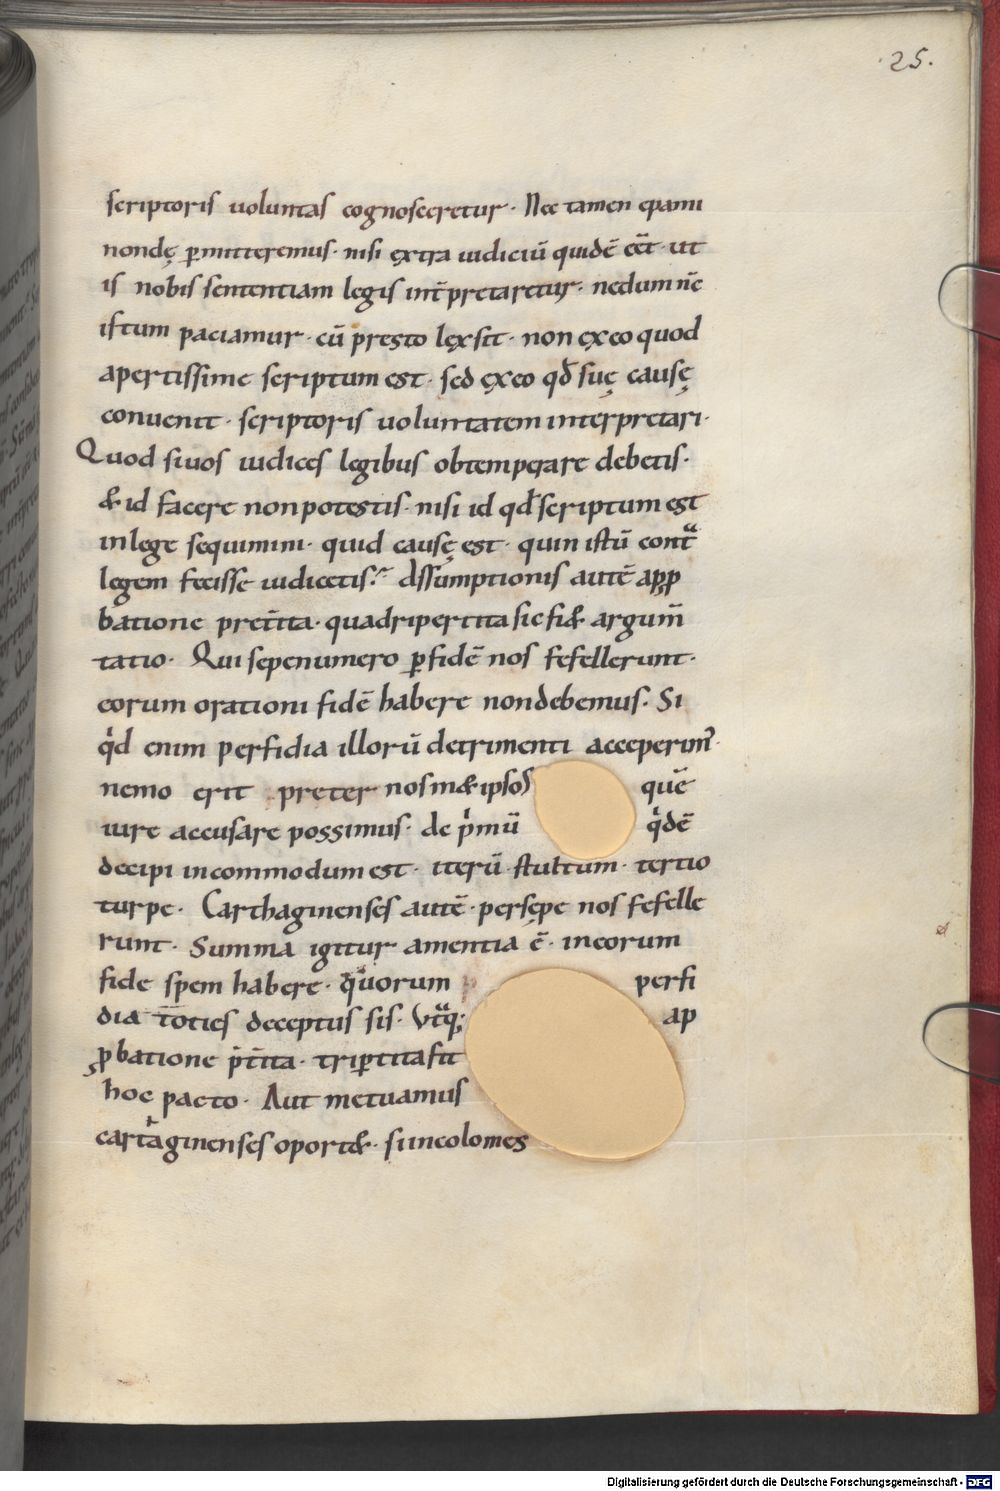 25.
scriptoris uoluntas cognosceretur· Nec tamen epami
nondę p̱mitteremus· nisi ęxtra iudiciū quidē eēt· ut
is nobis sententiam legis int̄pretaretur· nedum nc̄
istum paciamur· cū presto lęx sit· non ęx eo quod
apertissime scriptum est· sed ęx eo qđ suę causę
conuenit· scriptoris uoluntatem interpretari·
Quod si uos iudices legibus obtemperare debetis·
& id facere non potestis· nisi id qđ scriptum est
in lege sequimini· quid causę est· quin istū contᷓ
legem fecisse iudicetis? Assumptionis autē app̱
batione pret̄ita· quadripertita sic fi& argum̄
tatio· Qui sepenumero p̱ fidē nos fefellerunt·
eorum orationi fidē habere non debemus· Si
qͥd enim perfidia illorū detrimenti acceperim᾽·
nemo erit preter nosm&ipsos quē
iure accusare possimus· de pͥmū qͥdē
decipi incommodum est· iterū stultum· tertio
turpe· Carthaginenses autē persępe nos fefelle
runt· Summa igitur amentia ē· in eorum
fide spem habere· quorum perfi
dia toties deceptus sis· Vtᷓq; ap
ꝓbatione p̄t̄ita· trip̱tita fit
hoc pacto· Aut metuamus
cartaginenses oport&· si incolomes
Digitalisierung gefördert durch die Deutsche Forschungsgemeinschaft - DFG